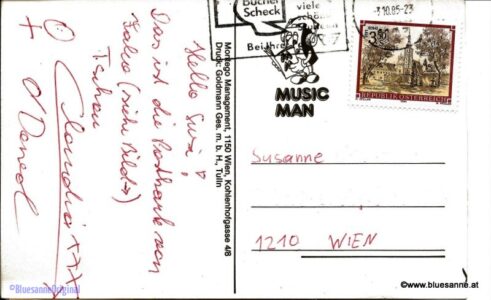 Bücher
Scheck
viele
schöne
Bei Ihrer
10.85-23
S 3.50
REPUBLIK ÖSTERREICH
MUSIC
MAN
Hello Susi!
Das ist die Postkarte von
Falco (siehe Bild →)
Tschau
Claudia xxx
+
Montego Management, 1150 Wien, Kohlenhofgasse 4/8
Druck: Goldmann Ges. m. b. H., Tulln
Susanne
1210 WIEN
©BluesanneOriginal
www.bluesanne.at